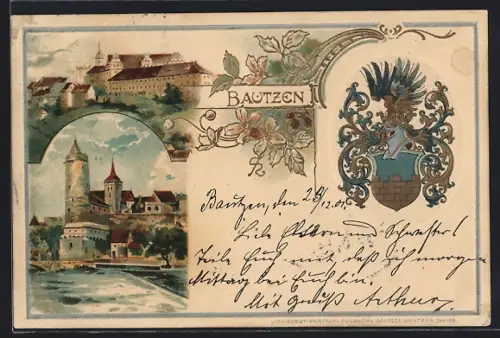 BAUTZEN
Bautzen, den 28/12.01.
Liebe Eltern und Schwester!
Teile Euch mit, daß ich morgen
Mittag bei Euch bin.
Mit Gruß Arthur